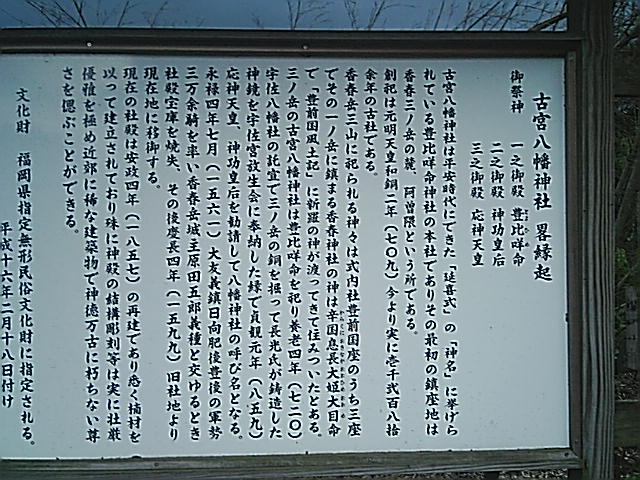 古宮八幡神社 畧縁起
御祭神 一之御殿 豊比咩命
二之御殿 神功皇后
三之御殿 応神天皇
古宮八幡神社は平安時代にできた「延喜式」の「神名」に挙げら
れている豊比咩命神社の本社でありその最初の鎮座地は
香春三ノ岳の麓、阿曽隈という所である。
創祀は元明天皇和銅二年(七〇九)今より実に壱千弐百八拾
余年の古社である。
香春岳三山に祀られる神々は式内社豊前国座のうち三座
でその一ノ岳に鎮まる香春神社の神は辛国息長大姫大目命
で「豊前国風土記」に新羅の神が渡ってきて住みついたとある。
三ノ岳の古宮八幡神社は豊比咩命を祀り養老四年(七二〇)
宇佐八幡社の託宣で三ノ岳の銅を掘って長光氏が鋳造した
神鏡を宇佐宮放生会に奉納した縁で貞観元年(八五九)
応神天皇、神功皇后を勧請して八幡神社の呼び名となる。
永禄四年七月(一五六一)大友義鎮日向肥後豊後の軍勢
三万余騎を率い香春岳城主原田五郎義種と交ゆるとき
社殿宝庫を焼失、その後慶長四年(一五九九)旧社地より
現在地に移御する。
現在の社殿は安政四年(一八五七)の再建であり悉く楠材を
以って建立されており殊に神殿の結構彫刻等は実に壮厳
優雅を極め近郊に稀な建築物で神徳万古に朽ちない尊
さを偲ぶことができる。
文化財 福岡県指定無形民俗文化財に指定される。
平成十六年二月十八日付け